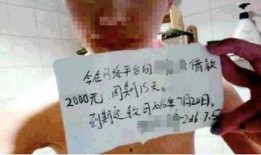 今在网络平台向 借款
2000元,周期15天。
到期还款日2016年7月20日。
2016.7.5